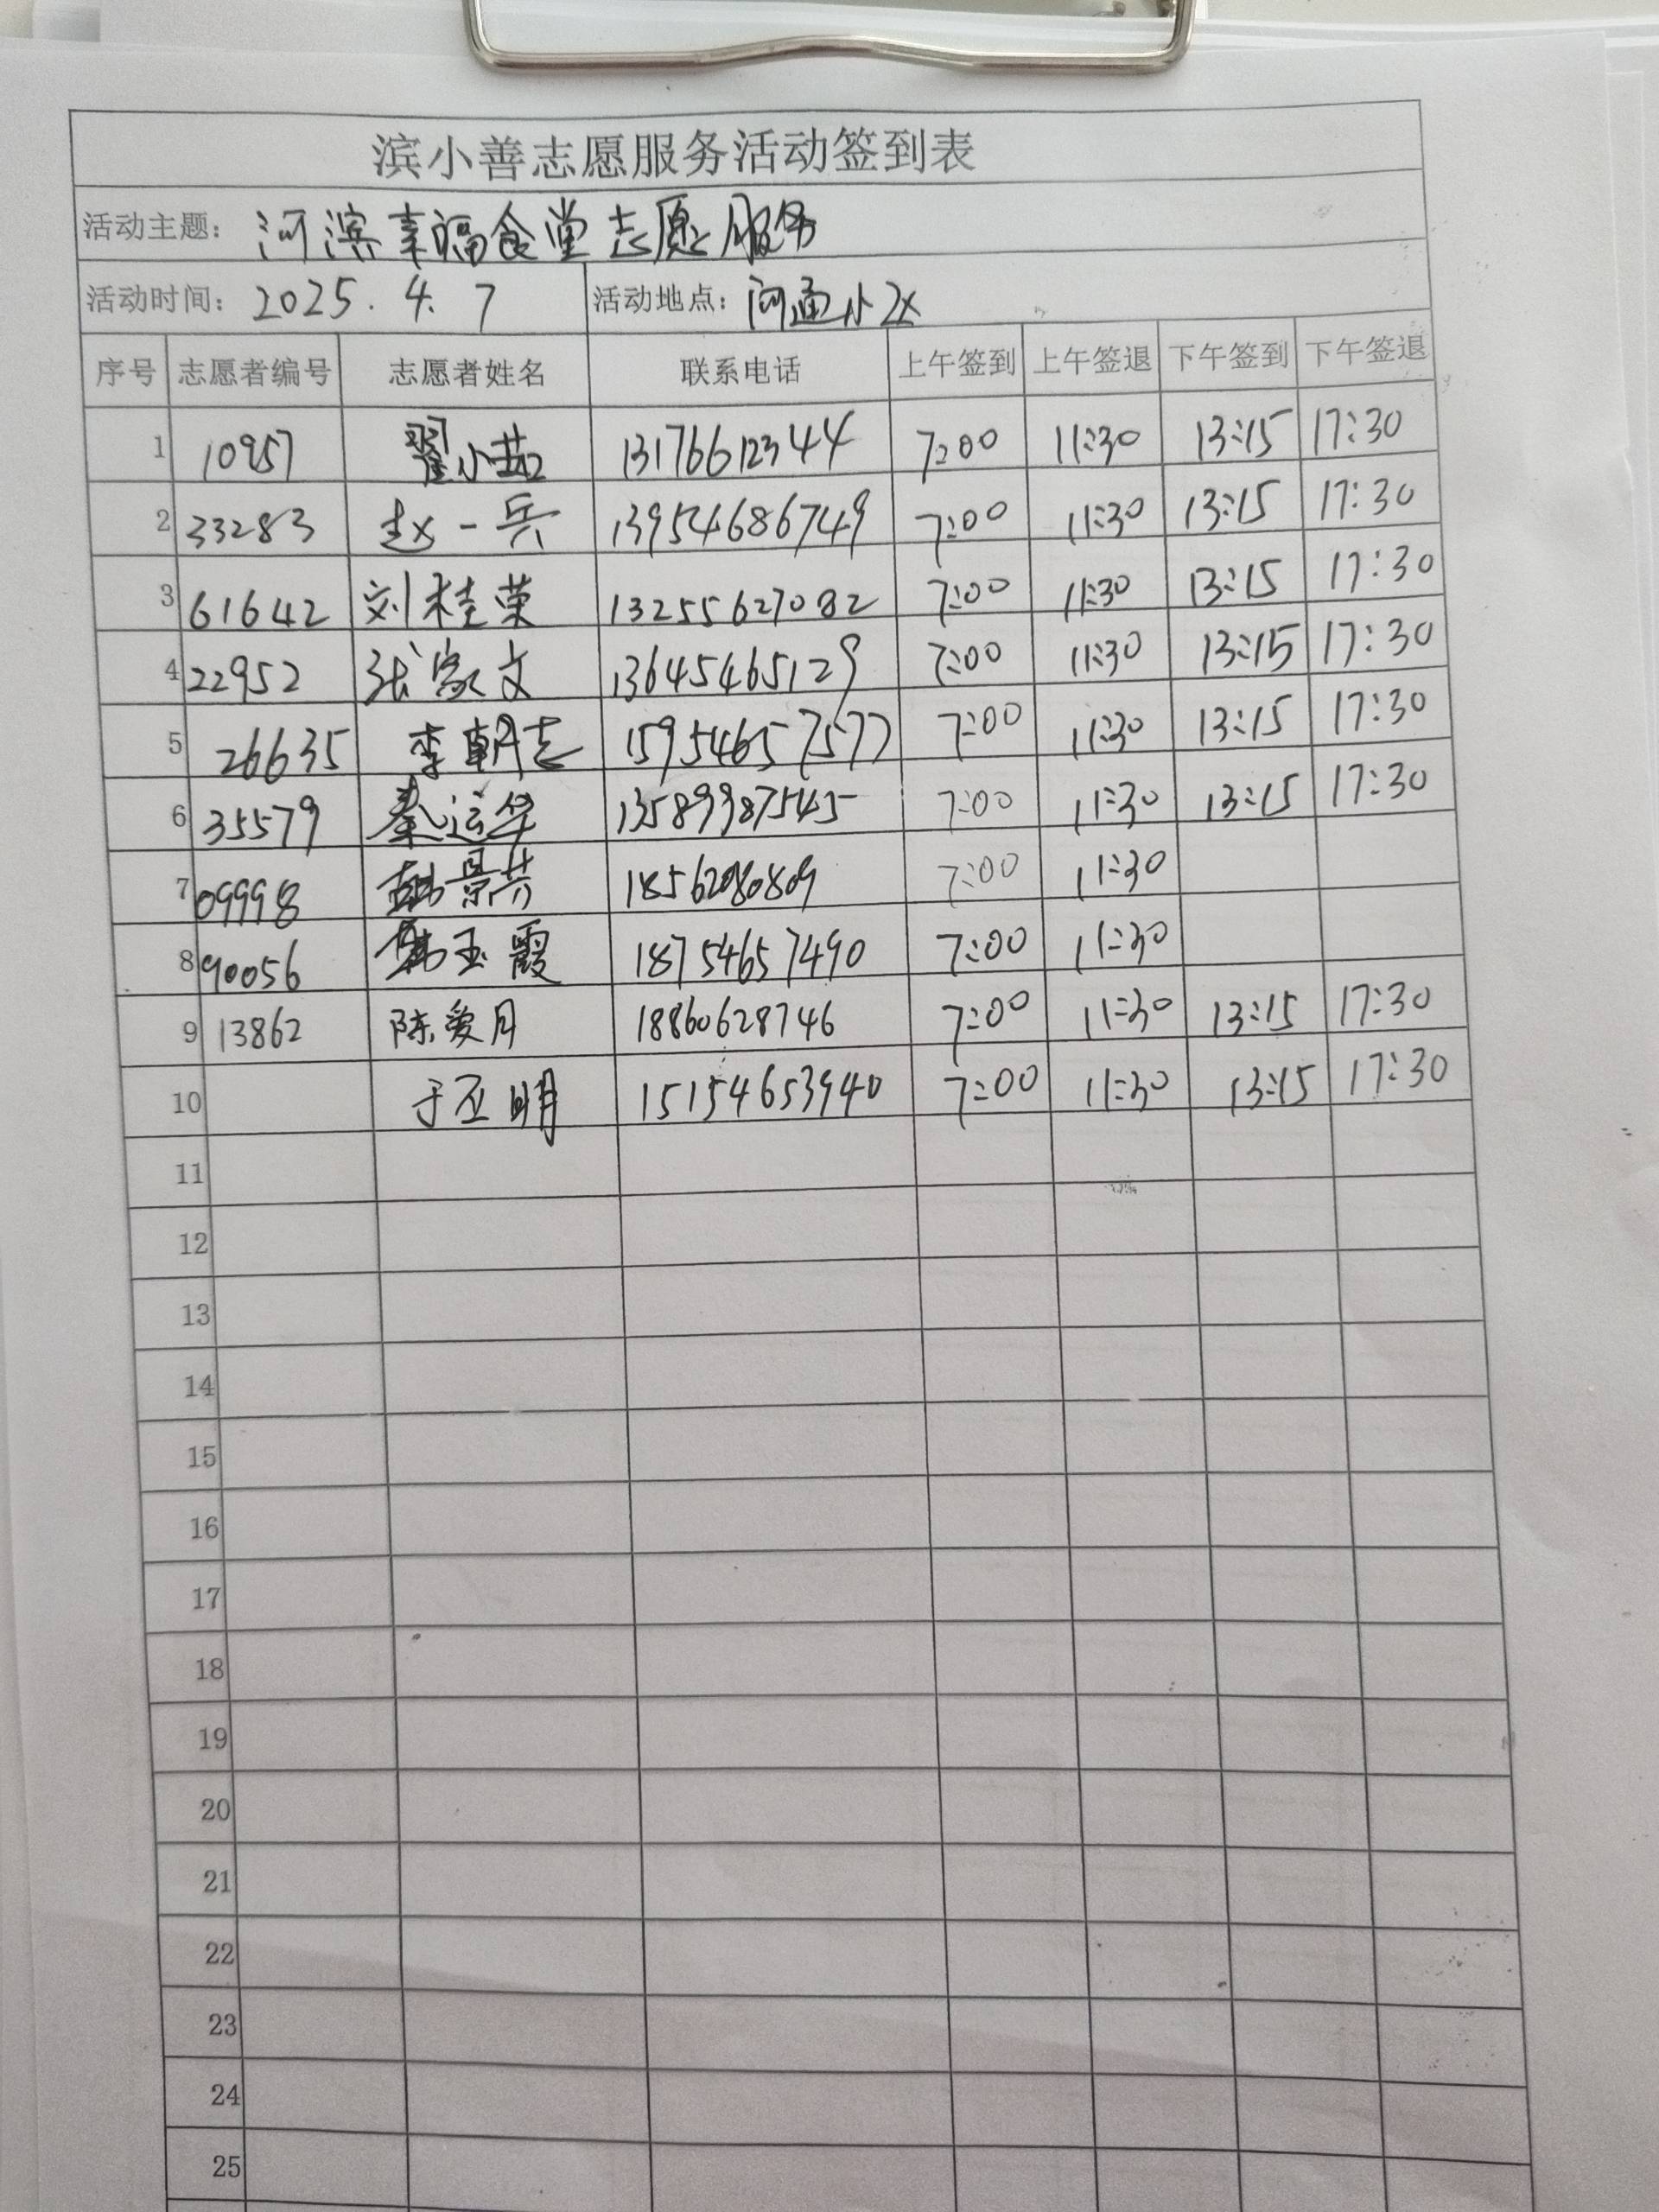 滨小善志愿服务活动签到表
活动主题：河滨幸福食堂志愿服务
活动时间：2025.4.7 活动地点：河通小区
序号 志愿者编号 志愿者姓名 联系电话 上午签到 上午签退 下午签到 下午签退
1 10957 翟小茹 13176612344 7:00 11:30 13:15 17:30
2 33283 赵一兵 13954686749 7:00 11:30 13:15 17:30
3 61642 刘桂荣 13255627082 7:00 11:30 13:15 17:30
4 22952 张家文 13645465129 7:00 11:30 13:15 17:30
5 26635 李朝志 15954657577 7:00 11:30 13:15 17:30
6 35579 秦运华 13589987545 7:00 11:30 13:15 17:30
7 09998 景芳 18562080809 7:00 11:30
8 90056 韩玉霞 18754657490 7:00 11:30
9 13862 陈爱月 18860628746 7:00 11:30 13:15 17:30
10 于正明 15154653940 7:00 11:30 13:15 17:30
11
12
13
14
15
16
17
18
19
20
21
22
23
24
25